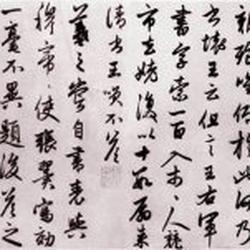 仰於此何乃
書壞王云但言王右軍
書字索一百入市人競
市去姥復以十數扇來
請書王笑不答
羲之嘗自書表與
穆帝使張翼寫効
一毫不異題後答之